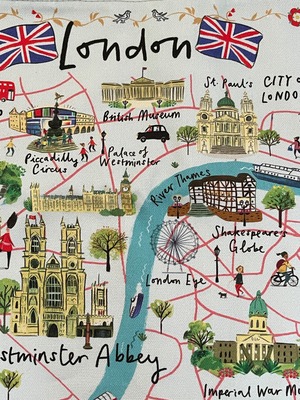 London
St. Paul's
CITY O
LONDO
British Museum
Piccadilly
Circus
Palace of
Westminster
River Thames
Shakespeare's
Globe
London Eye
stminster Abbey
Imperial War M